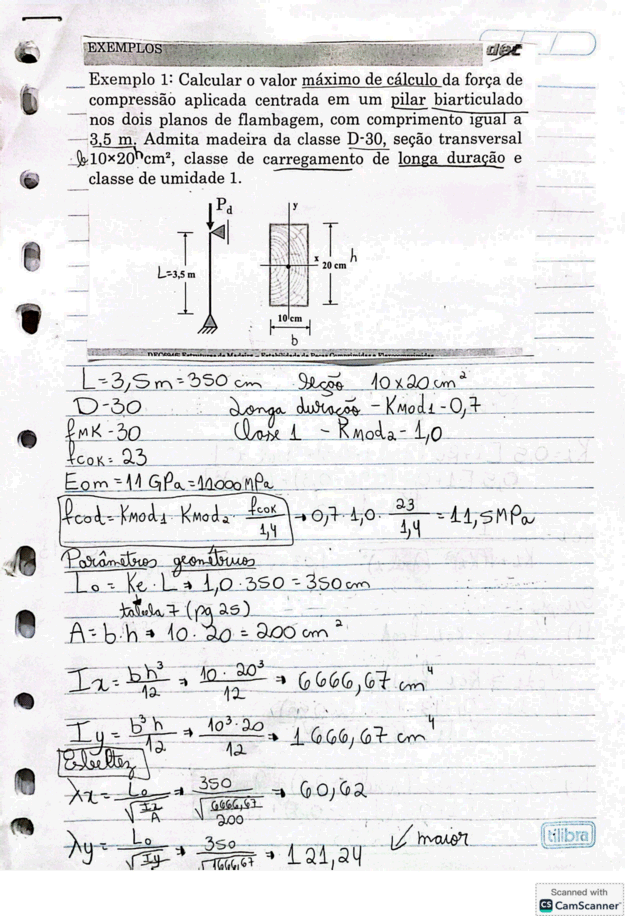 EXEMPLOS
dec
Exemplo 1: Calcular o valor máximo de cálculo da força de
compressão aplicada centrada em um pilar biarticulado
nos dois planos de flambagem, com comprimento igual a
3,5 m. Admita madeira da classe D-30, seção transversal
b 10×20 h cm², classe de carregamento de longa duração e
classe de umidade 1.
Pd
y
L=3,5 m
x
20 cm h
10 cm
b
L = 3,5m = 350 cm Seção 10 x 20 cm²
D-30 Longa duração - Kmod1 - 0,7
fMK - 30 Classe 1 - Kmod2 - 1,0
fcok = 23
Eom = 11 GPa = 11000 MPa
fcod = Kmod1 · Kmod2 · fcok/1,4 → 0,7 · 1,0 · 23/1,4 = 11,5 MPa
Parâmetros geométricos
Lo = Ke · L → 1,0 · 350 = 350 cm
tabela 7 (pg 25)
A = b·h → 10 · 20 = 200 cm²
Ix = bh³/12 → 10 · 20³/12 → 6666,67 cm⁴
Iy = b³h/12 → 10³ · 20/12 → 1666,67 cm⁴
Esbeltez
λx = Lo/√(Ix/A) → 350/√(6666,67/200) → 60,62
λy = Lo/√(Iy → 350/√(1666,67 → 121,24 ↙ maior
tilibra
Scanned with
CS CamScanner